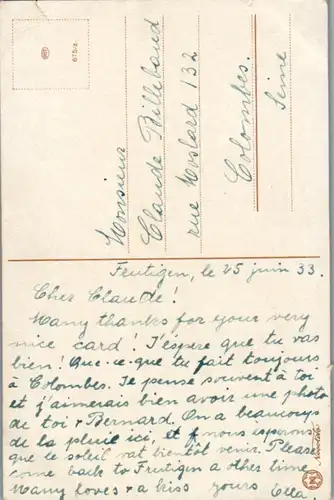 675/2.
Monsieur
Claude Billebaud
rue Moslard 132
Colombes.
Seine
Frutigen, le 25 juin 33.
Cher Claude!
Many thanks for your very
nice card! J'espère que tu vas
bien! Que-ce-que tu fait toujours
à Colombes. Je pense souvent à toi
et j'aimerais bien avoir une photo
de toi + Bernard. On a beaucoup
de la pluie ici, et nous esperons
que le soleil vat bientôt venir. Please
come back to Frutigen a other time.
Many loves + a kiss yours Ella